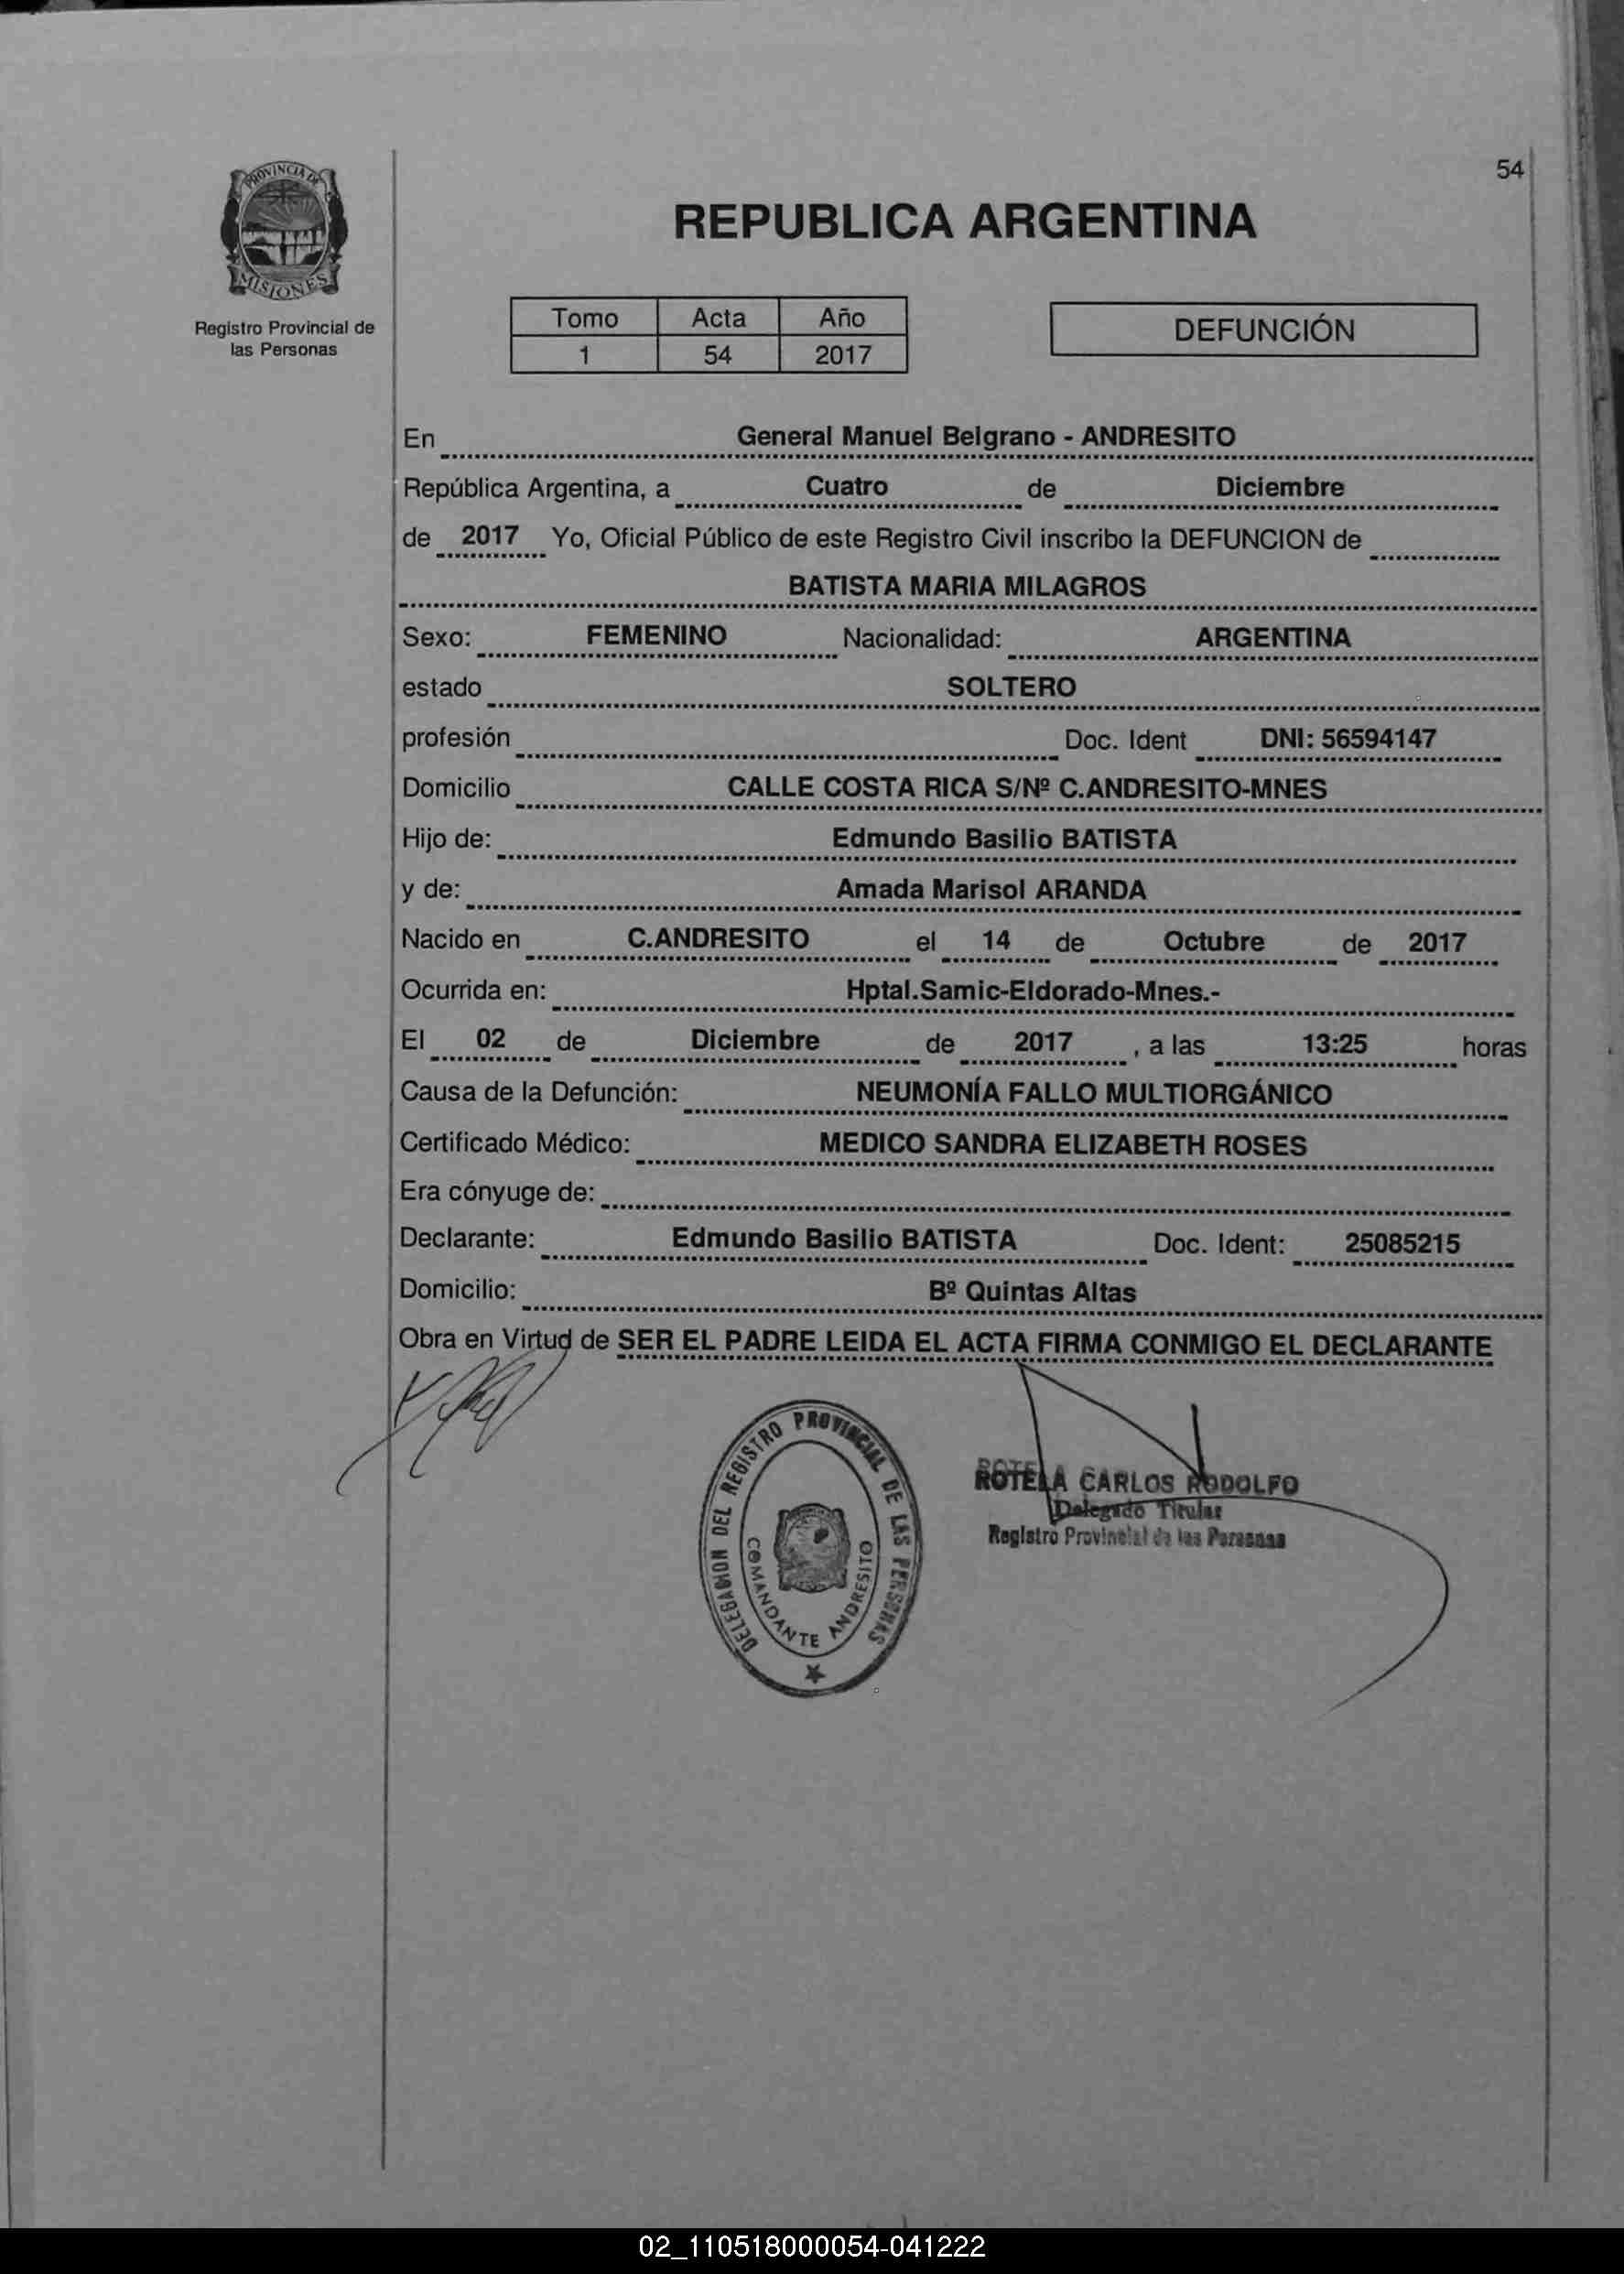 54
PROVINCIA DE
MISIONES
Registro Provincial de
las Personas
REPUBLICA ARGENTINA
Tomo Acta Año
1 54 2017
DEFUNCIÓN
En General Manuel Belgrano - ANDRESITO
República Argentina, a Cuatro de Diciembre
de 2017 Yo, Oficial Público de este Registro Civil inscribo la DEFUNCION de
BATISTA MARIA MILAGROS
Sexo: FEMENINO Nacionalidad: ARGENTINA
estado SOLTERO
profesión Doc. Ident DNI: 56594147
Domicilio CALLE COSTA RICA S/Nº C.ANDRESITO-MNES
Hijo de: Edmundo Basilio BATISTA
y de: Amada Marisol ARANDA
Nacido en C.ANDRESITO el 14 de Octubre de 2017
Ocurrida en: Hptal.Samic-Eldorado-Mnes.-
El 02 de Diciembre de 2017 , a las 13:25 horas
Causa de la Defunción: NEUMONÍA FALLO MULTIORGÁNICO
Certificado Médico: MEDICO SANDRA ELIZABETH ROSES
Era cónyuge de:
Declarante: Edmundo Basilio BATISTA Doc. Ident: 25085215
Domicilio: Bº Quintas Altas
Obra en Virtud de SER EL PADRE LEIDA EL ACTA FIRMA CONMIGO EL DECLARANTE
DELEGACION DEL REGISTRO PROVINCIAL DE LAS PERSONAS
COMANDANTE ANDRESITO
ROTELA CARLOS RODOLFO
Delegado Titular
Registro Provincial de las Personas
02_110518000054-041222